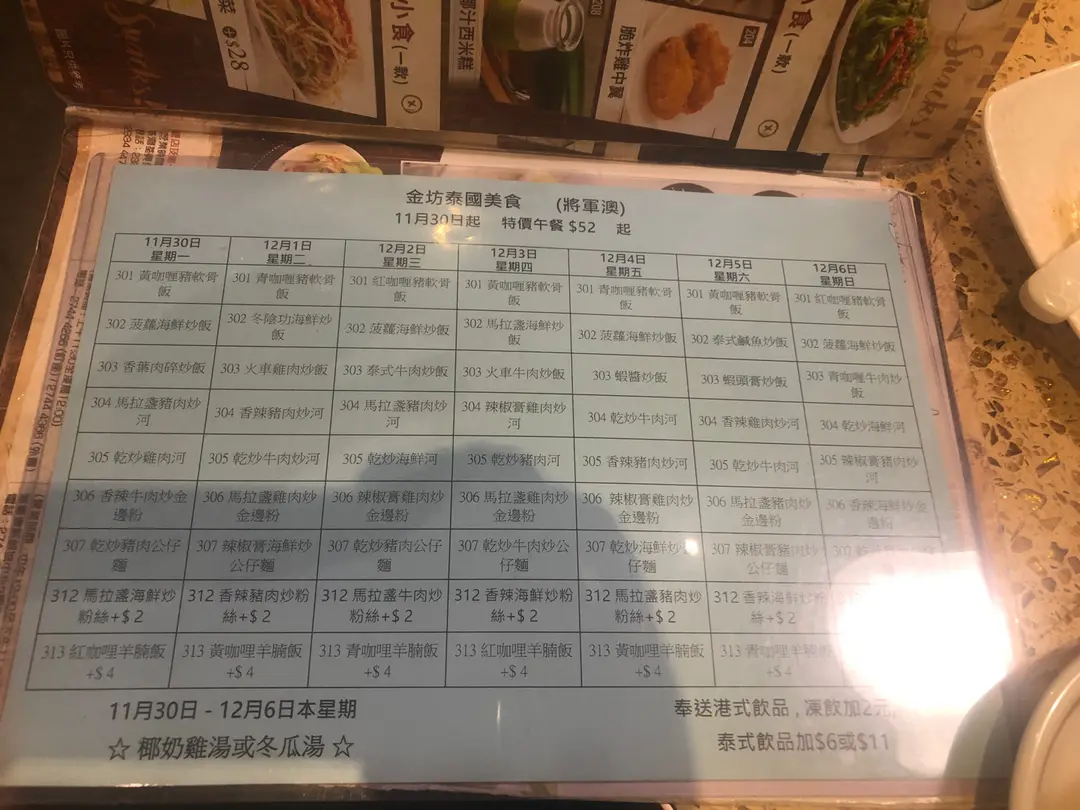 菜
+$28
小食(一款)
椰汁西米糕
208
脆炸雞中翼
204
小食(一款)
Snacks!
金坊泰國美食 (將軍澳)
11月30日起 特價午餐 $52 起
11月30日 星期一
12月1日 星期二
12月2日 星期三
12月3日 星期四
12月4日 星期五
12月5日 星期六
12月6日 星期日
301 黃咖喱豬軟骨飯
301 青咖喱豬軟骨飯
301 紅咖喱豬軟骨飯
301 黃咖喱豬軟骨飯
301 青咖喱豬軟骨飯
301 黃咖喱豬軟骨飯
301 紅咖喱豬軟骨飯
302 菠蘿海鮮炒飯
302 冬陰功海鮮炒飯
302 菠蘿海鮮炒飯
302 馬拉盞海鮮炒飯
302 菠蘿海鮮炒飯
302 泰式鹹魚炒飯
302 菠蘿海鮮炒飯
303 香葉肉碎炒飯
303 火車雞肉炒飯
303 泰式牛肉炒飯
303 火車牛肉炒飯
303 蝦醬炒飯
303 蝦頭膏炒飯
303 青咖喱牛肉炒飯
304 馬拉盞豬肉炒河
304 香辣豬肉炒河
304 馬拉盞豬肉炒河
304 辣椒膏雞肉炒河
304 乾炒牛肉河
304 香辣雞肉炒河
304 乾炒海鮮河
305 乾炒雞肉河
305 乾炒牛肉炒河
305 乾炒海鮮河
305 乾炒豬肉河
305 香辣豬肉炒河
305 乾炒牛肉河
305 辣椒膏豬肉炒河
306 香辣牛肉炒金邊粉
306 馬拉盞雞肉炒金邊粉
306 辣椒膏雞肉炒金邊粉
306 馬拉盞雞肉炒金邊粉
306 辣椒膏雞肉炒金邊粉
306 馬拉盞豬肉炒金邊粉
306 香辣海鮮炒金邊粉
307 乾炒豬肉公仔麵
307 辣椒膏海鮮炒公仔麵
307 乾炒豬肉公仔麵
307 乾炒牛肉炒公仔麵
307 乾炒海鮮炒公仔麵
307 辣椒膏豬肉炒公仔麵
307
312 馬拉盞海鮮炒粉絲+$ 2
312 香辣豬肉炒粉絲+$ 2
312 馬拉盞牛肉炒粉絲+$ 2
312 香辣海鮮炒粉絲+$ 2
312 馬拉盞豬肉炒粉絲+$ 2
312 香辣海鮮炒粉絲+$ 2
313 紅咖哩羊腩飯+$ 4
313 黃咖哩羊腩飯+$ 4
313 青咖哩羊腩飯+$ 4
313 紅咖哩羊腩飯+$ 4
313 黃咖哩羊腩飯+$ 4
313 青咖哩羊腩飯+$ 4
11月30日 - 12月6日本星期
☆ 椰奶雞湯或冬瓜湯 ☆
奉送港式飲品 , 凍飲加2元
泰式飲品加$6或$11